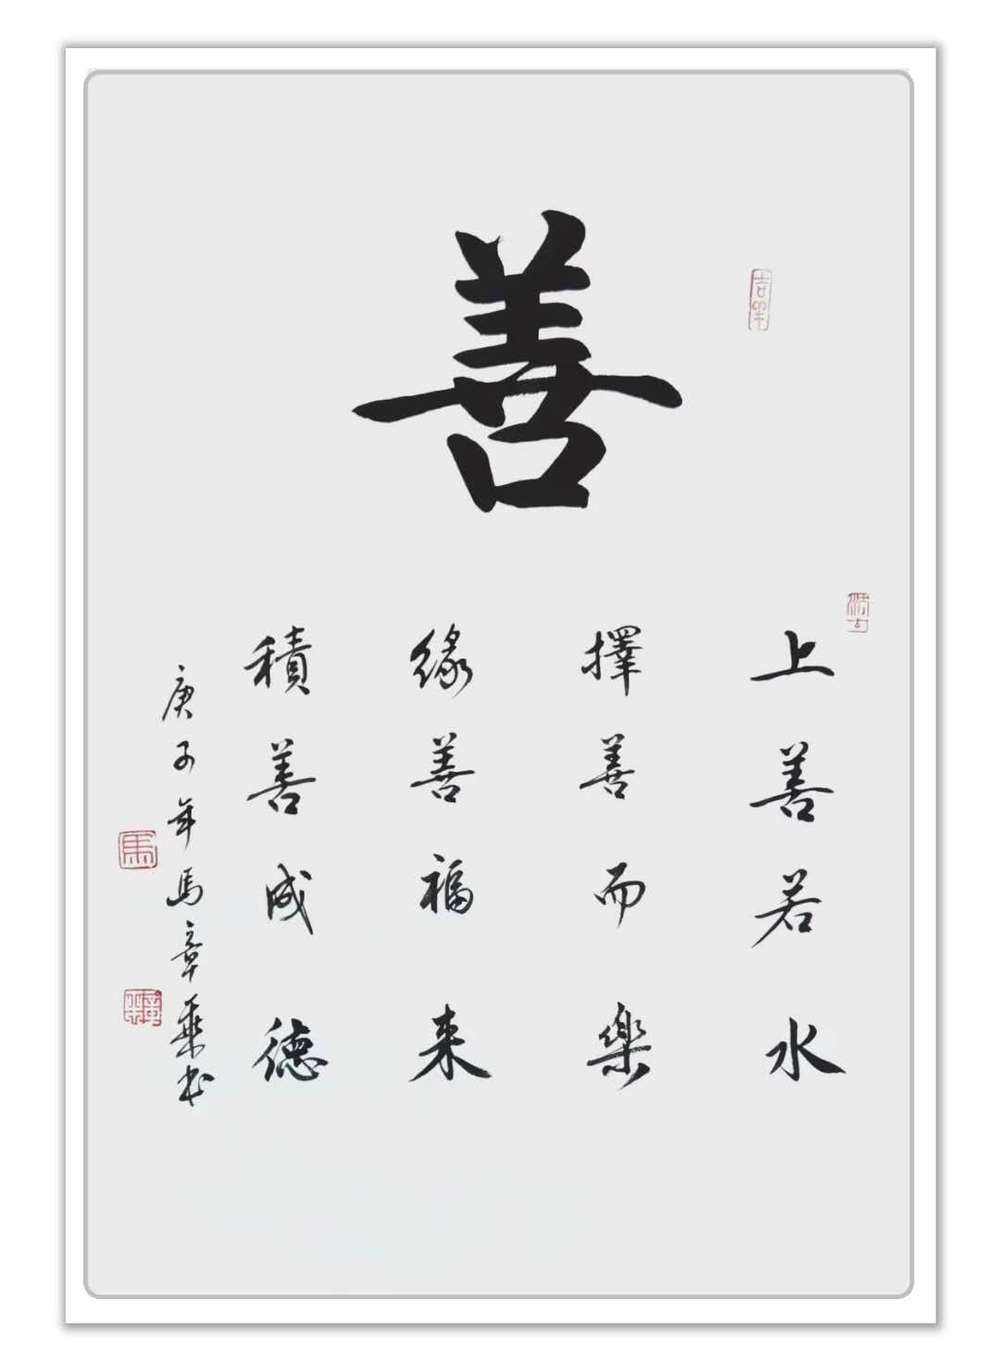 善
上善若水
擇善而樂
緣善福来
積善成德
庚子年馬章乘书
吉羊
馬